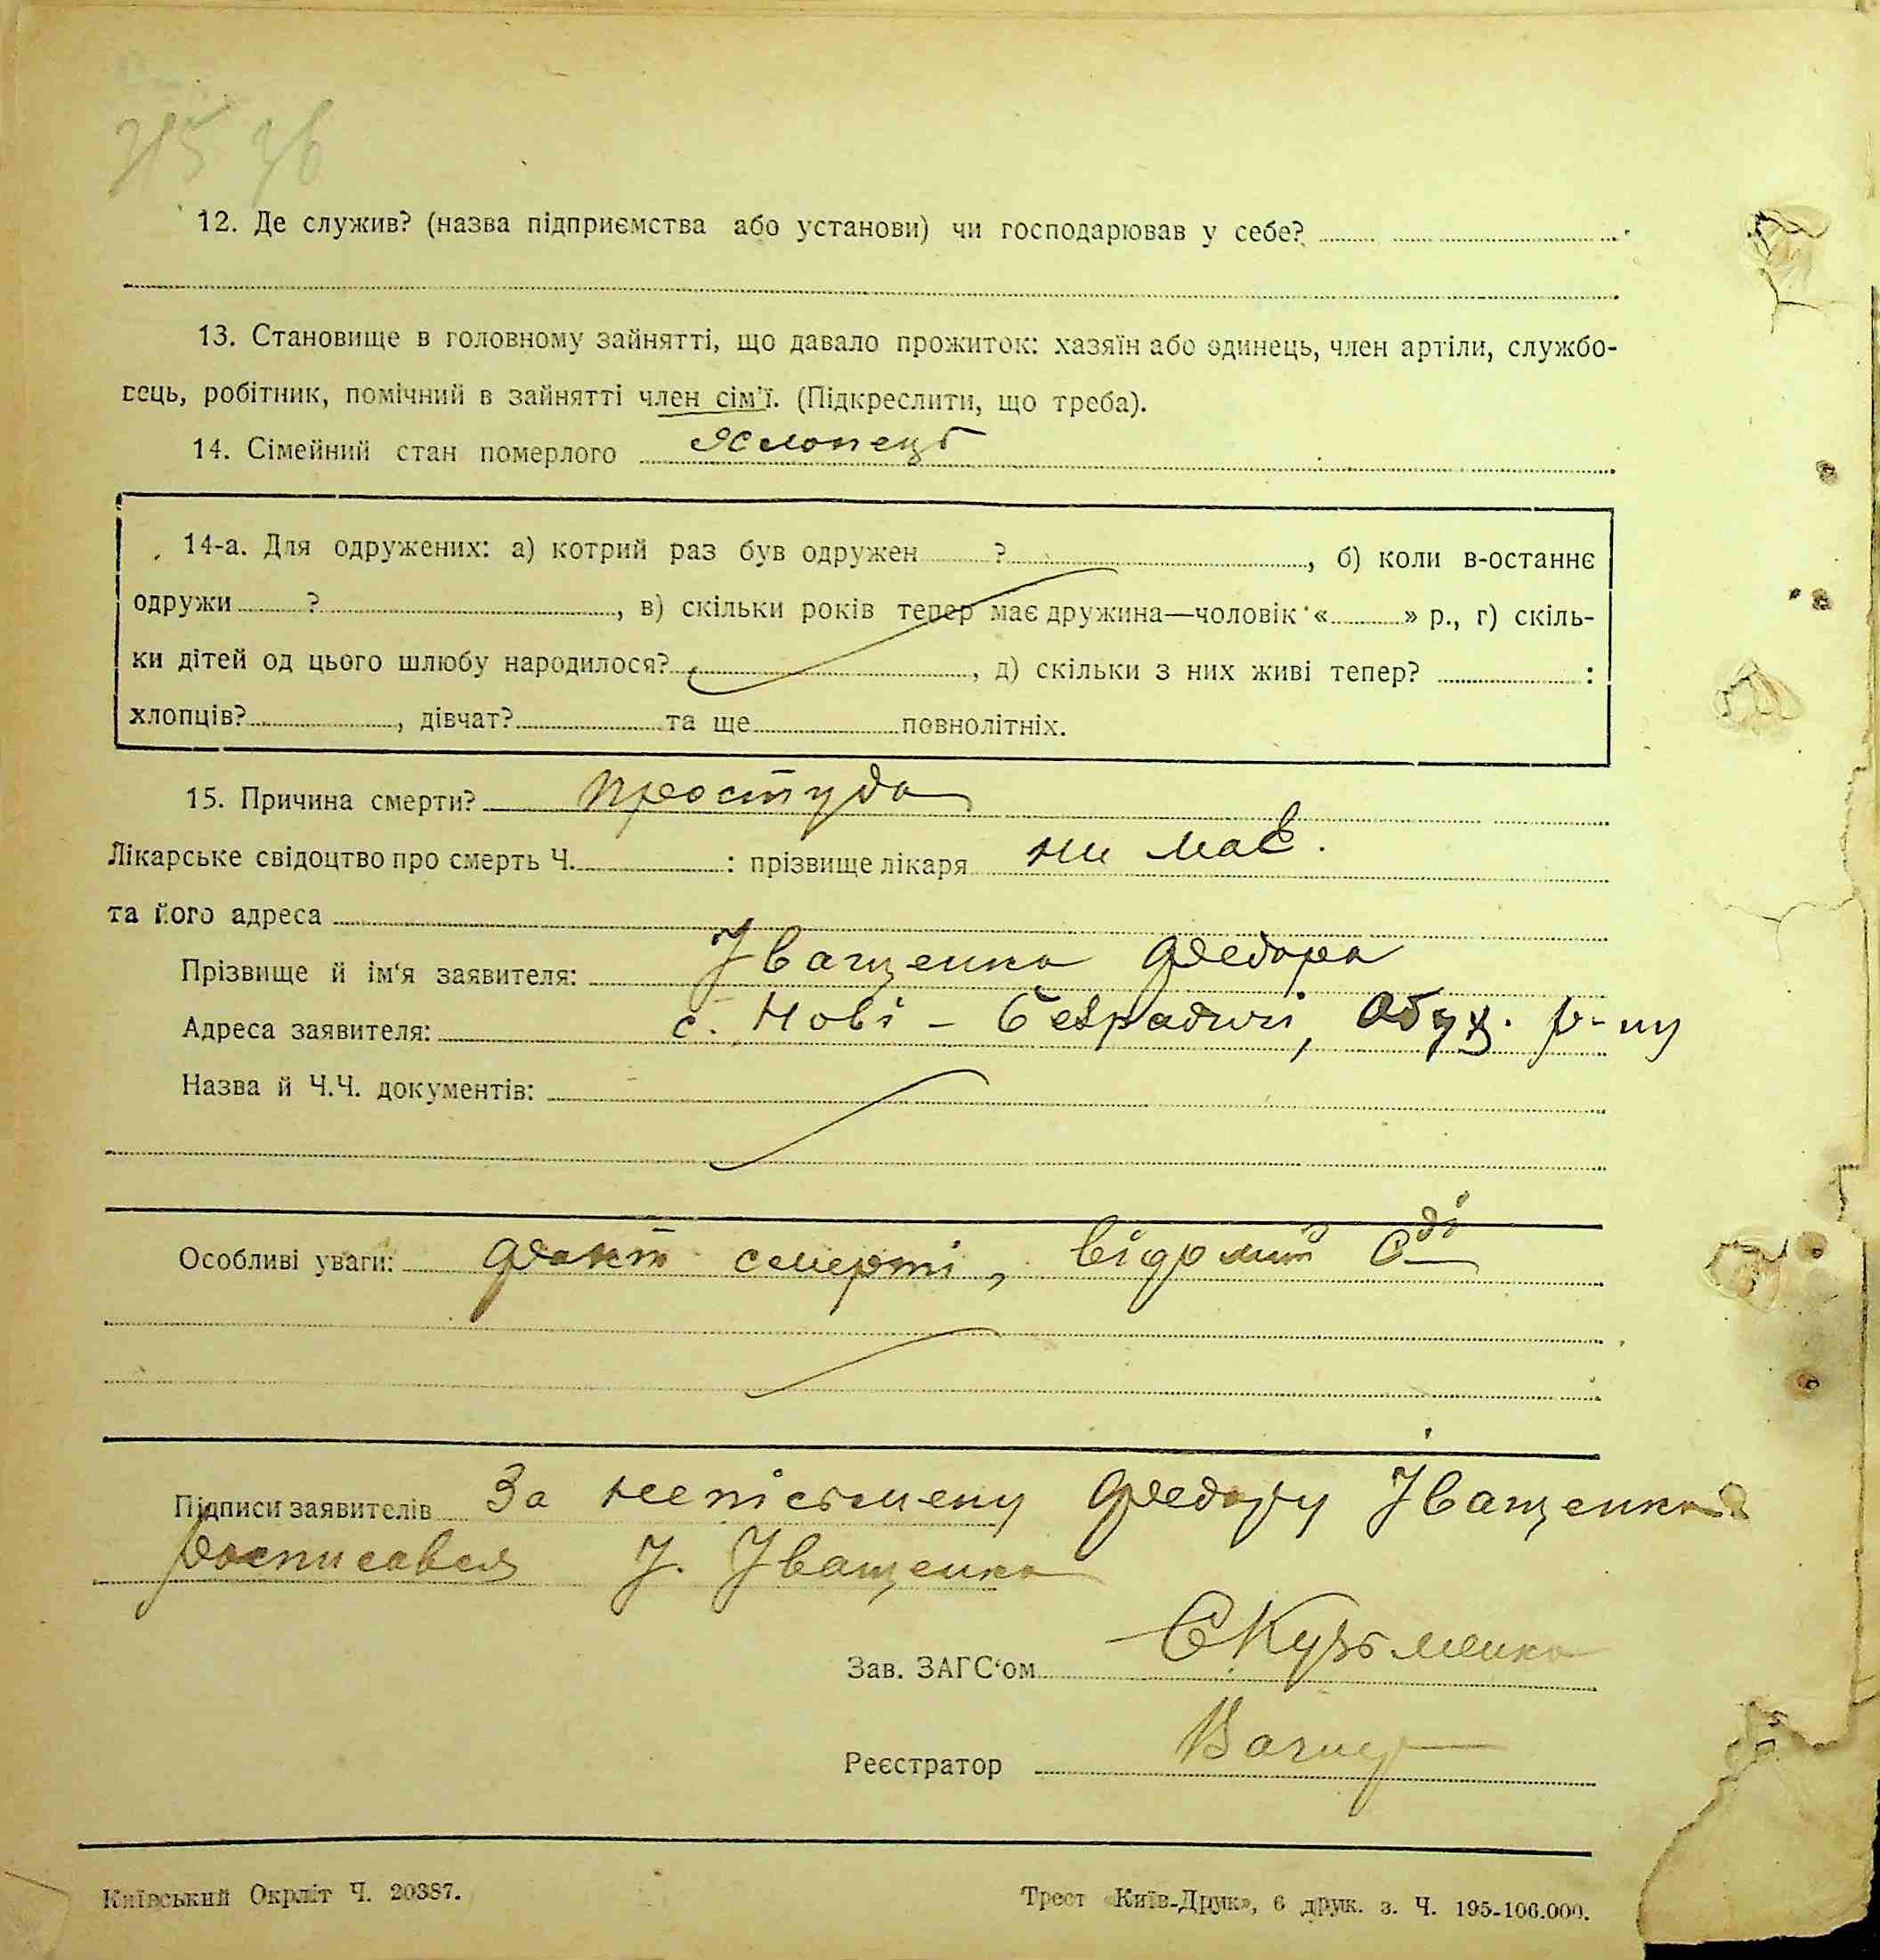 315 зв
12. Де служив? (назва підприємства або установи) чи господарював у себе?
13. Становище в головному зайнятті, що давало прожиток: хазяїн або одинець, член артіли, службо-
вець, робітник, помічний в зайнятті член сім'ї. (Підкреслити, що треба).
14. Сімейний стан померлого хлопець
14-а. Для одружених: а) котрий раз був одружен ? , б) коли в-останнє
одружи ? , в) скільки років тепер має дружина—чоловік « » р., г) скіль-
ки дітей од цього шлюбу народилося? , д) скільки з них живі тепер? :
хлопців? , дівчат? та ще повнолітніх.
15. Причина смерти? простуда
Лікарське свідоцтво про смерть Ч. : прізвище лікаря ни має.
та його адреса
Прізвище й ім'я заявителя: Іващенко Федора
Адреса заявителя: с. Нові - Безрадичі, Обух. р-ну
Назва й Ч.Ч. документів:
Особливі уваги: факт смерті, відомий с/ді
Підписи заявителів За неписьмену Федору Іващенко
росписався І. Іващенко
Зав. ЗАГС'ом Є Кузьменко
Реєстратор
Київський Окрліт Ч. 20387.
Трест «Київ-Друк», 6 друк. з. Ч. 195-100.000.